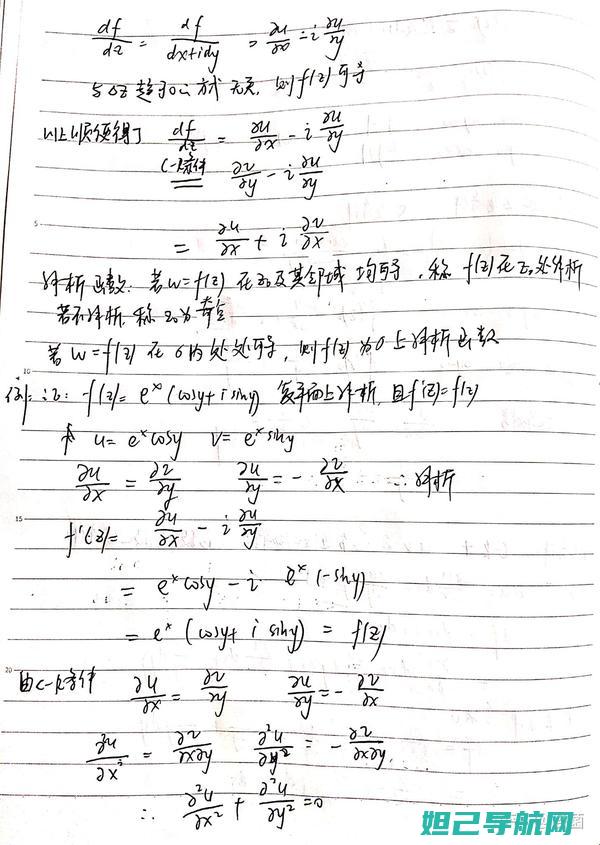 df/dz = df/(dx+idy) = ∂u/∂x - i ∂u/∂y
与Δz趋于0的方式无关, 则f(z)可导
以上顺便得了 df/dz = ∂u/∂x - i ∂u/∂y
C-R条件 ∂v/∂y - i ∂u/∂y
5
= ∂u/∂x + i ∂v/∂x
解析函数: 若w=f(z) 在z₀及其邻域 均可导, 称 f(z)在z₀处解析
若不解析, 称z₀为奇点
若 w=f(z) 在 σ内处处可导, 则f(z)为σ上解析函数
10
例: 证: f(z)= eˣ(cosy+isiny) 复平面上解析, 且f'(z)=f(z)
u= eˣcosy v= eˣsiny
∂u/∂x = ∂v/∂y ∂u/∂y = - ∂v/∂x ∴解析
15
f'(z)= ∂u/∂x - i ∂u/∂y
= eˣcosy - i eˣ(-siny)
= eˣ(cosy+ i siny) = f(z)
20
由C-R条件 ∂u/∂x = ∂v/∂y ∂u/∂y = - ∂v/∂x
∂²u/∂x² = ∂v/∂x∂y ∂²u/∂y² = - ∂v/∂x∂y
∴ ∂²u/∂x² + ∂²u/∂y² =0
妲己导航网